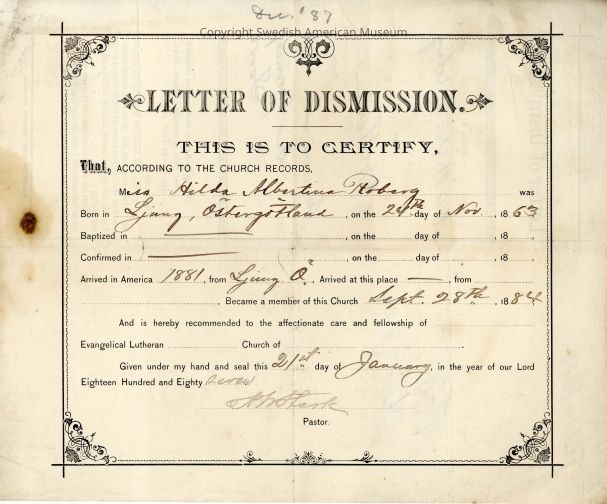 Dec. '87
Copyright Swedish American Museum
LETTER OF DISMISSION.
THIS IS TO CERTIFY,
That, ACCORDING TO THE CHURCH RECORDS,
Miss Hilda Albertina Roberg was
Born in Ljung, Östergötland, on the 24th day of Nov. , 1863
Baptized in , on the day of , 18 ,
Confirmed in , on the day of , 18 ,
Arrived in America 1881, from Ljung Ö., Arrived at this place — , from
, Became a member of this Church Sept. 28th , 1884
And is hereby recommended to the affectionate care and fellowship of
Evangelical Lutheran Church of
Given under my hand and seal this 21st day of January, in the year of our Lord
Eighteen Hundred and Eighty seven
Pastor.